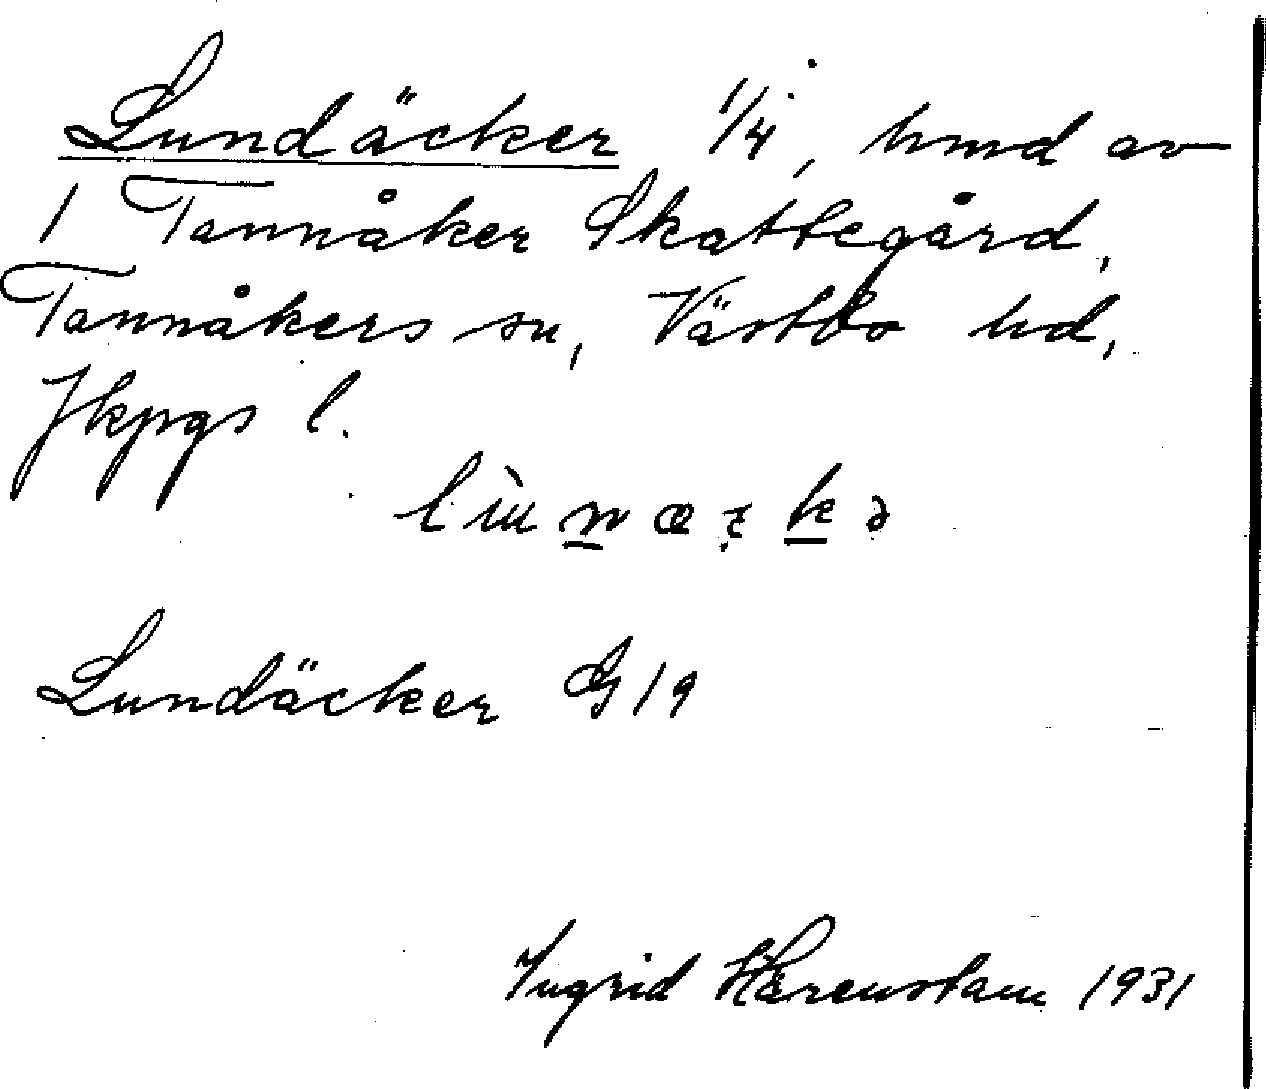 Lundäcker 1/4, hmd av
1 Tannåker Skattegård,
Tannåkers sn, Västbo hd,
Jkpgs l.
Lundäcker G 19
Ingrid Härenstam 1931